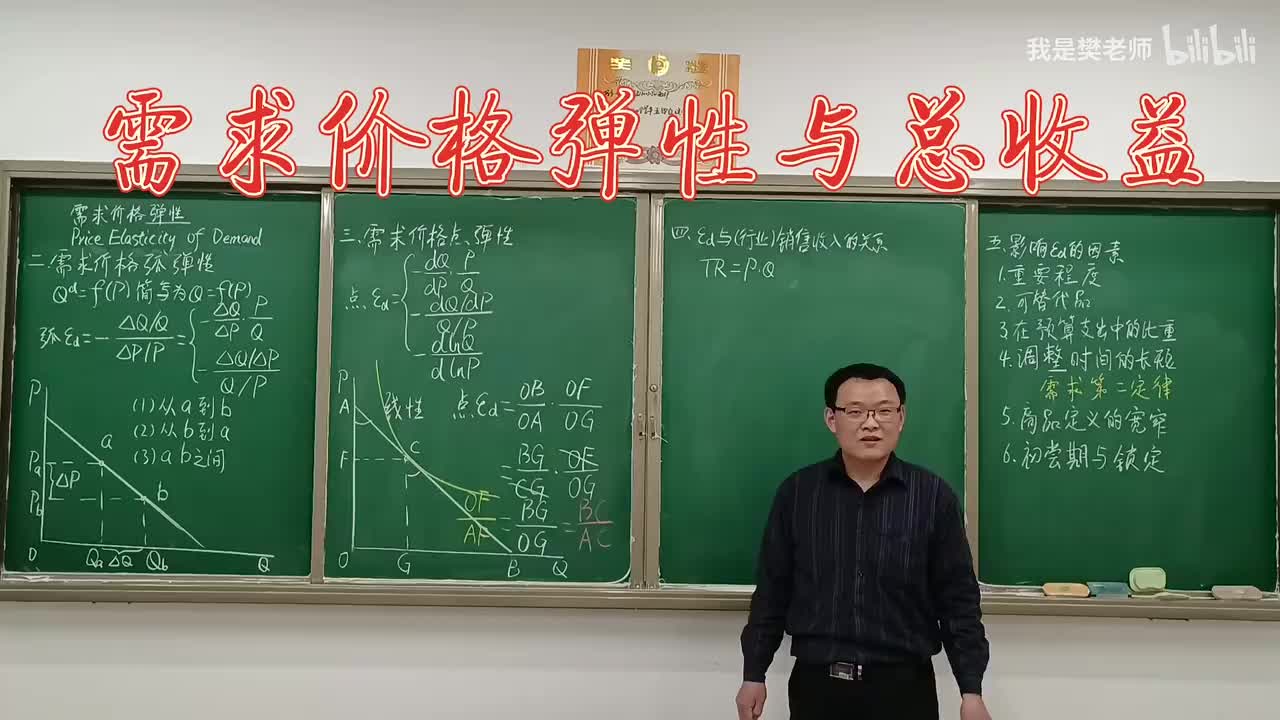 我是樊老师 bilibili
需求价格弹性与总收益
需求价格弹性
Price Elasticity of Demand
二.需求价格弧弹性
Qᵈ=f(P)简写为Q=f(P)
弧εd=-
ΔQ/Q
ΔP/P
=
-ΔQ/ΔP·P/Q
-
ΔQ/ΔP
Q/P
P
(1)从a到b
(2)从b到a
(3)ab之间
a
Pa
ΔP
b
Pb
O
Qa ΔQ Qb
Q
三.需求价格点弹性
点εd=
-dQ/dP·P/Q
-
dQ/dP
Q/P
-
dlnQ
dlnP
P
A
线性 点εd=OB/OA·OF/OG
F
C
=BG/CG·OF/OG
OF/AF=BG/OG=BC/AC
O
G
B
Q
四.εd与(行业)销售收入的关系
TR=P·Q
五.影响εd的因素
1.重要程度
2.可替代品
3.在预算支出中的比重
4.调整时间的长短
需求第二定律
5.商品定义的宽窄
6.初尝期与锁定